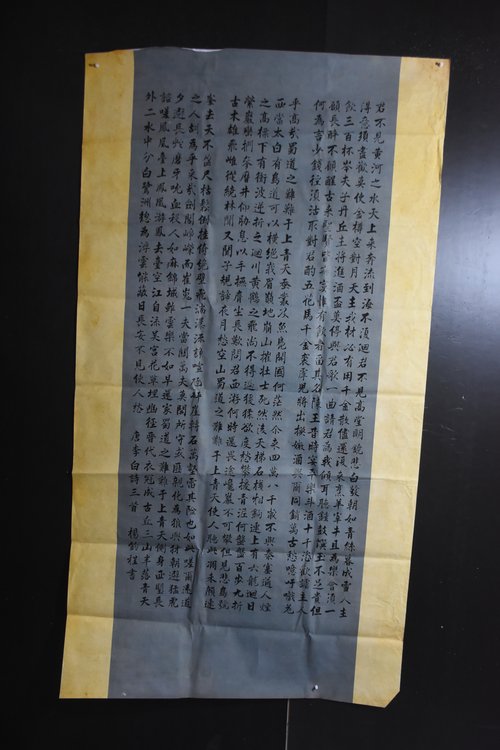 君不見黃河之水天上來奔流到海不復迴君不見高堂明鏡悲白髮朝如青絲暮成雪人生
得意須盡歡莫使金樽空對月天生我材必有用千金散儘還復來烹羊宰牛且為樂會須一
飲三百杯岑夫子丹丘生將進酒盃莫停與君歌一曲請君為我傾耳聽鐘鼓饌玉不足貴但
願長醉不願醒古來聖賢皆寂寞惟有飲者留其名陳王昔時宴平樂斗酒十千恣歡謔主人
何為言少錢徑須沽取對君酌五花馬千金裘呼兒將出換美酒與爾同銷萬古愁噫吁嚱危
乎高哉蜀道之難難于上青天蠶叢及魚鳧開國何茫然尒來四萬八千歲不與秦塞通人煙
西當太白有鳥道可以橫絕峨眉巔地崩山摧壯士死然後天梯石棧相鉤連上有六龍迴日
之高標下有衝波逆折之迴川黃鶴之飛尚不得過猿猱欲度愁攀援青泥何盤盤百步九折
縈巖巒捫參歷井仰脅息以手撫膺坐長歎問君西遊何時還畏途巉巖不可攀但見悲鳥號
古木雄飛雌從繞林間又聞子規啼夜月愁空山蜀道之難難于上青天使人聽此凋朱顏連
峯去天不盈尺枯松倒挂倚絕壁飛湍瀑流爭喧豗砯崖轉石萬壑雷其險也如此嗟爾遠道
之人胡為乎來哉劍閣崢嶸而崔嵬一夫當關萬夫莫開所守或匪親化為狼與豺朝避猛虎
夕避長蛇磨牙吮血殺人如麻錦城雖雲樂不如早還家蜀道之難難于上青天側身西望長
諮嗟鳳凰臺上鳳凰游鳳去臺空江自流吳宮花草埋幽徑晉代衣冠成古丘三山半落青天
外二水中分白鷺洲總為浮雲能蔽日長安不見使人愁 唐李白詩三首 楊鈞程書